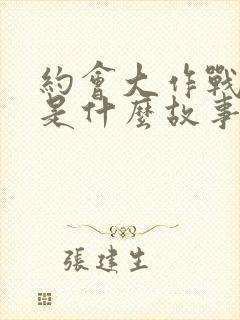 約會大作戰
是什麼故事
張建生